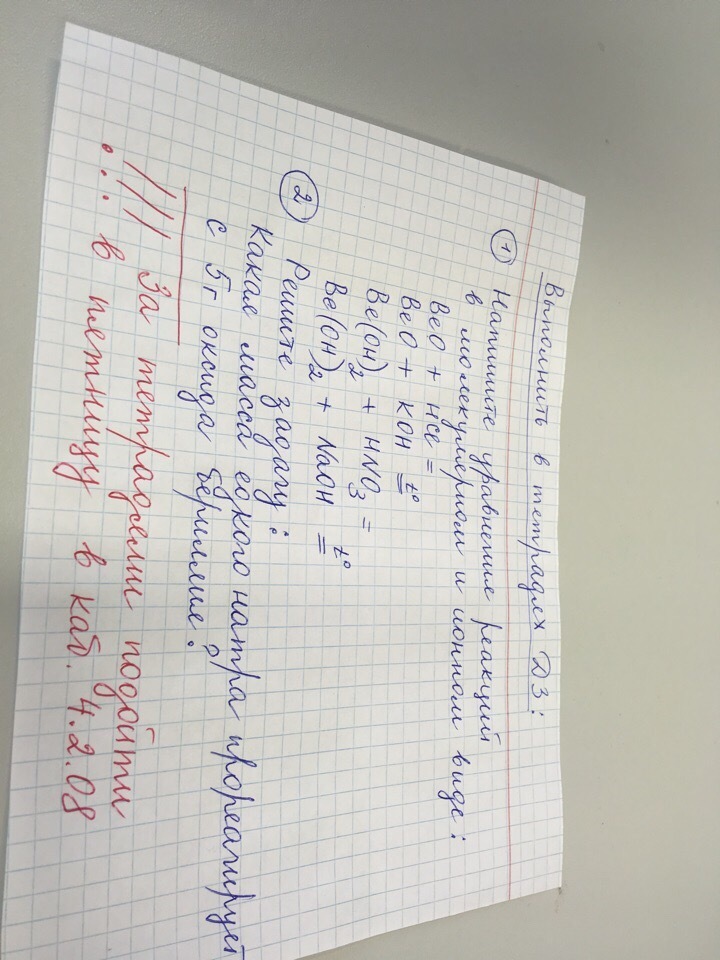 Выполнить в тетрадях ДЗ:
① Напишите уравнение реакций
в молекулярном и ионном виде:
BeO + HCl =
BeO + KOH t° =
Be(OH)₂ + HNO₃ =
Be(OH)₂ + NaOH t° =
② Решите задачу:
Какая масса едкого натра прореагирует
с 5г оксида бериллия?
!!! За тетрадями подойти
в пятницу в каб. 4.2.08